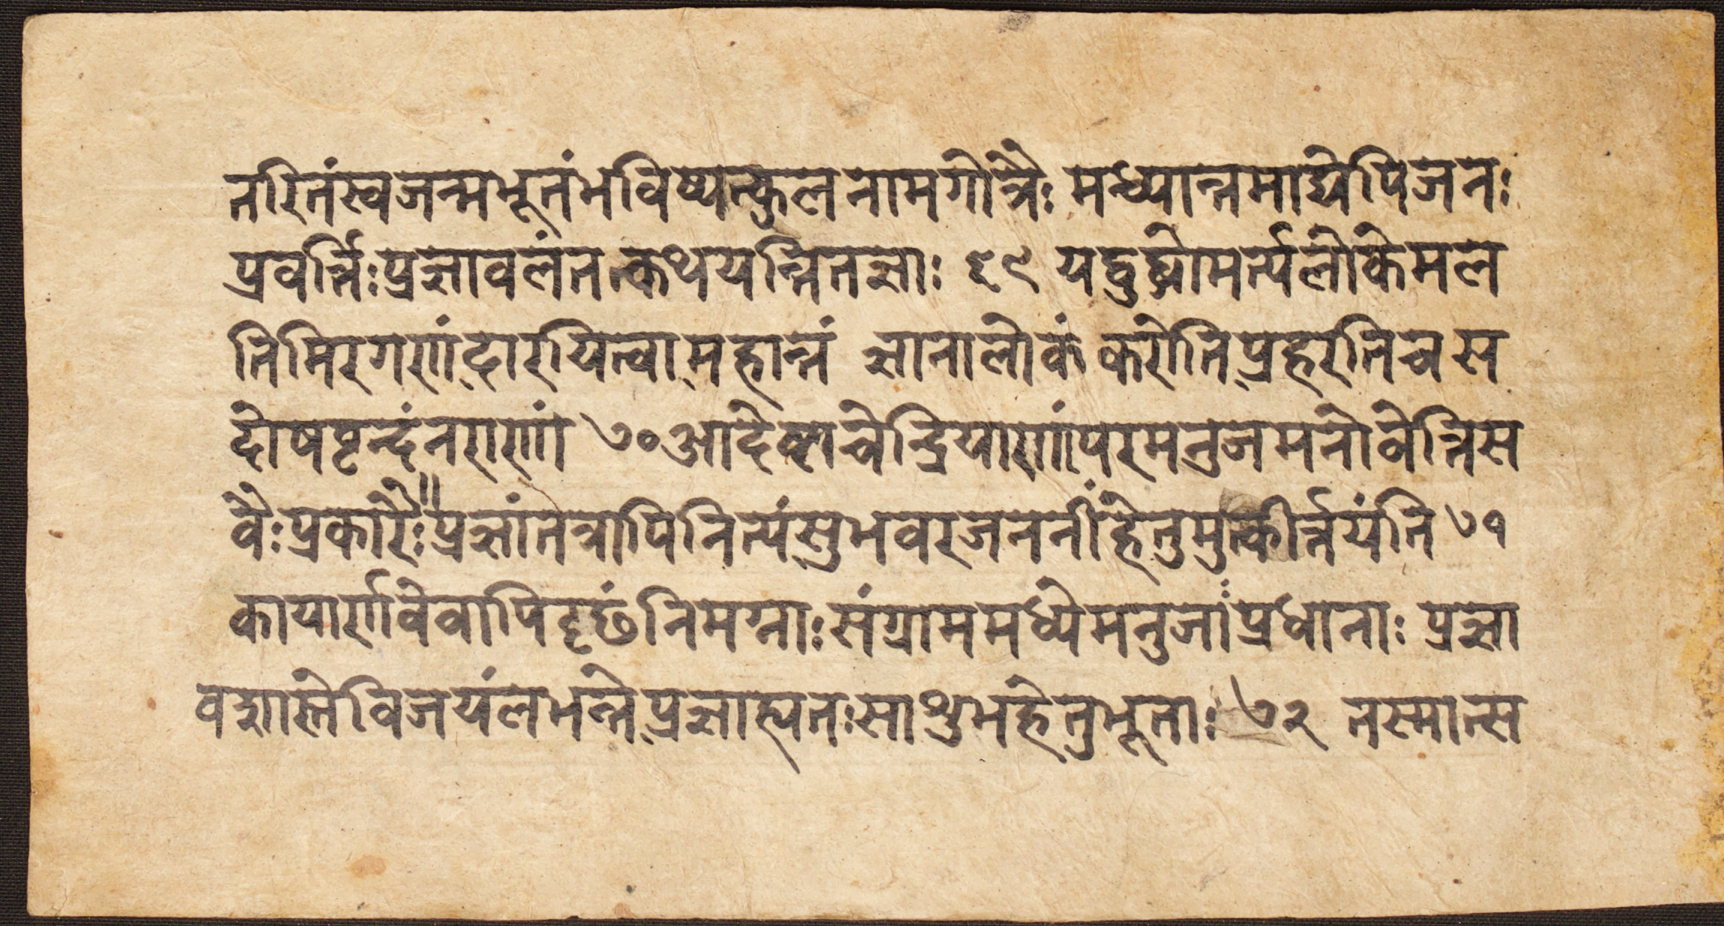 तरितंस्वजन्मभूतंभविष्यत्कुलनामगोत्रैः मध्यान्तमाद्येपिजनः
प्रवर्त्तिःप्रज्ञावलंतत्कथयन्तितज्ञाः ६९ यद्बुद्धोमर्त्यलोकेमल
तिमिरगणंदारयित्वामहान्तं ज्ञानालोकंकरोतिप्रहरतिचस
दोषवृन्दंनराणां ७०आदेष्टाचेन्द्रियाणांपरमनुजमनोवेत्तिस
र्वैःप्रकारैःप्रज्ञांतत्रापिनित्यंसुभवरजननींहेतुमुत्कीर्त्तयंति ७१
कार्यार्णवेवापिदृढंनिमग्नाःसंग्राममध्येमनुजांप्रधानाः प्रज्ञा
वशात्तेविजयंलभन्तेप्रज्ञाह्यतःसाशुभहेतुभूताः ७२ तस्मात्स